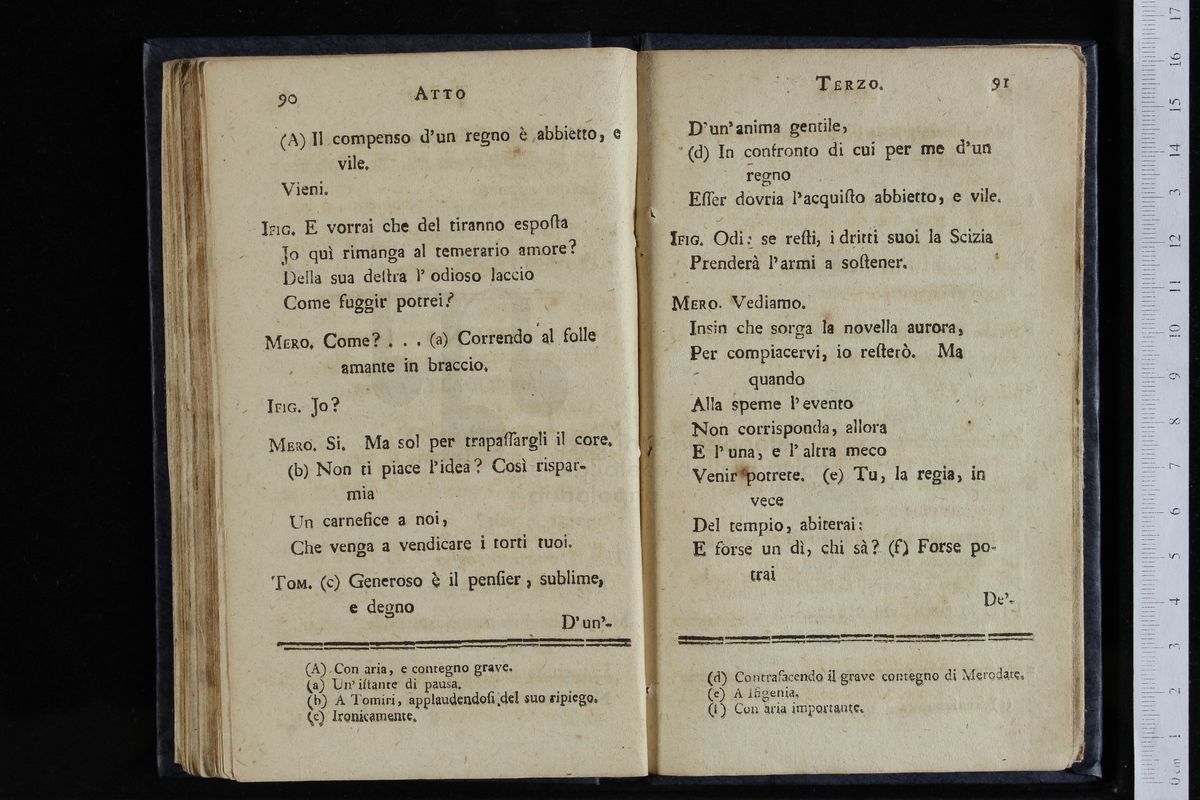 90 ATTO
(A) Il compenso d'un regno è abbietto, e
vile.
Vieni.
IFIG. E vorrai che del tiranno espoſta
Jo quì rimanga al temerario amore?
Della sua deſtra l' odioso laccio
Come fuggir potrei?
MERO. Come? . . . (a) Correndo al folle
amante in braccio.
IFIG. Jo?
MERO. Si. Ma sol per trapaſſargli il core.
(b) Non ti piace l'idea? Così rispar-
mia
Un carnefice a noi,
Che venga a vendicare i torti tuoi.
TOM. (c) Generoso è il penſier, sublime,
e degno
D'un'-
(A) Con aria, e contegno grave.
(a) Un' iſtante di pausa.
(b) A Tomiri, applaudendoſi del suo ripiego.
(c) Ironicamente.
TERZO. 91
D'un'anima gentile,
(d) In confronto di cui per me d'un
regno
Eſſer dovria l'acquiſto abbietto, e vile.
IFIG. Odi: se reſti, i dritti suoi la Scizia
Prenderà l'armi a soſtener.
MERO. Vediamo.
Insin che sorga la novella aurora,
Per compiacervi, io reſterò. Ma
quando
Alla speme l'evento
Non corrisponda, allora
E l'una, e l'altra meco
Venir potrete. (e) Tu, la regia, in
vece
Del tempio, abiterai:
E forse un dì, chi sà? (f) Forse po-
trai
De'-
(d) Contrafacendo il grave contegno di Merodate.
(e) A Ifigenia.
(f) Con aria importante.
0 cm 1 2 3 4 5 6 7 8 9 10 11 12 13 14 15 16 17